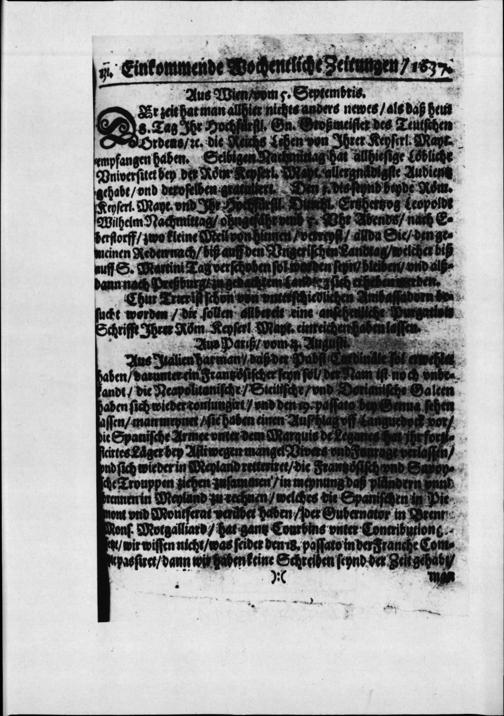 Einkommende Wochentliche Zeitungen / 1637.
Aus Wien / vom 5. Septembris.
DEr zeit hat man allhier nichts anders newes / als daß heut
8. Tag Ihr Hochfürstl. Gn. Großmeister des Teutschen
Ordens / ꝛc. die Reichs Lehen von Ihrer Keyserl. Mayt.
empfangen haben. Selbigen Nachmittag hat allhiesige Löbliche
Vniversitet bey der Röm Keyserl. Mayt. allergnädigste Audientz
gehabt / vnd deroselben gratuliert. Den 3. dis seynd beyde Röm.
Keyserl. Mayt. vnd Ihr Hochfürstl. Durchl. Ertzhertzog Leopoldt
Wilhelm Nachmittag / ohngefähr vmb 5. Vhr Abends / nach E-
berstorff / zwo kleine Meil von hinnen / verreyst / allda Sie / den ge-
meinen Reden nach / biß auff den Vngerischen Landtag / welcher biß
auff S. Martini Tag verschoben sol worden seyn / bleiben / vnd alß-
dann nach Preßburg / zu gedachtem Landtag sich erheben werden.
Chur Trier ist schon von vnterschiedlichen Ambassadorn be-
sucht worden / die sollen allbereit eine ansehnliche
Schrifft Ihrer Röm. Keyserl. Mayt. einreichen haben lassen.
Aus Pariß / vom Augusti.
Aus Italien hat man / daß der Pabst Cardinäle sol erwehlet
haben / darunter ein Frantzösischer seyn sol / der Nam ist noch vnbe-
kandt / die Neapolitanisch: / Sicilisch: / vnd Dorianische Galeen
haben sich wieder conjungirt / vnd den 19. passato bey Genua sehen
lassen / man meynet / sie haben einen Anschlag vff Languedock vor /
die Spanische Armee vnter dem Marquis de Leganes hat ihr forti-
ficirtes Läger bey Asti wegen mangel Vivers vnd Fourage verlassen /
vnd sich wieder in Meyland retteriret / die Frantzösisch vnd Savoy-
sche Trouppen ziehen zusammen / in meynung daß plündern vnnd
brennen in Meyland zu rechnen / welches die Spanischen in Pie-
mont vnd Montferat verübet haben / der Gubernator in
Mons. Motgalliard / hat gantz Courbins vnter Contribution
wir wissen nicht / was seider den 18. passato in der Franche Com-
passiret / dann wir haben keine Schreiben seynd der Zeit gehabt /
):(
man